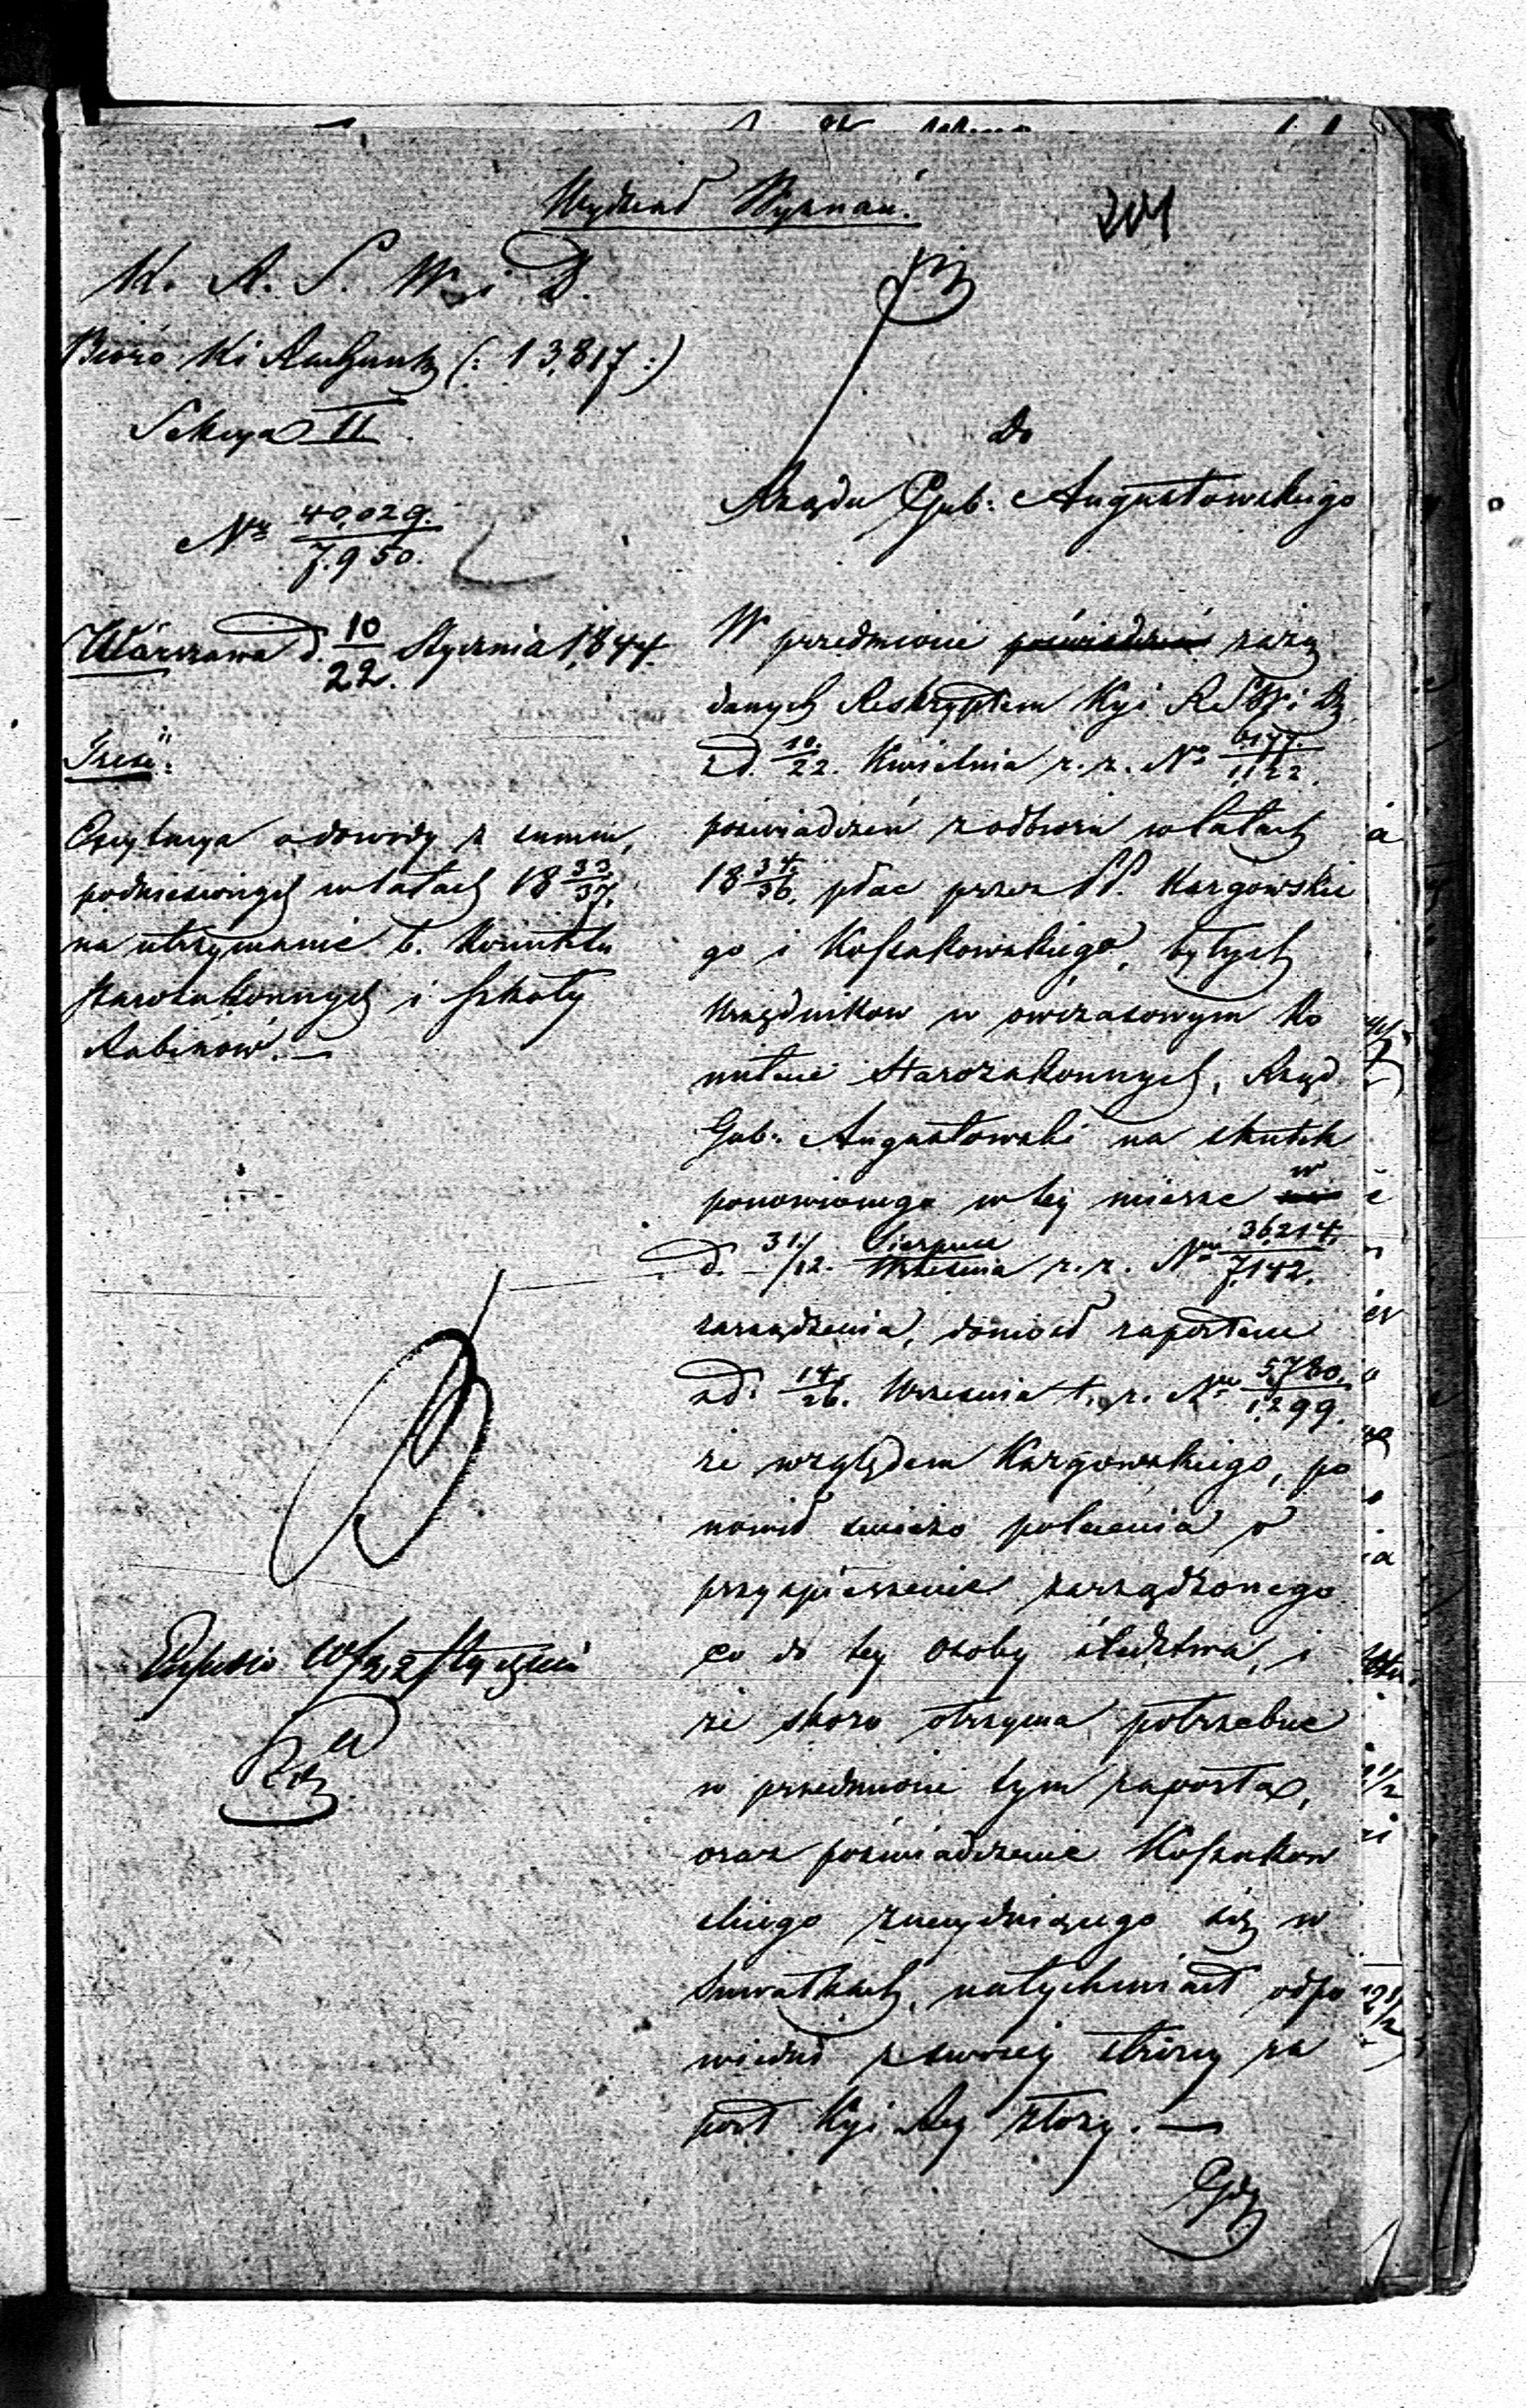 Wydział Wyznań.
201
K. R. S. W. i D.
Biuro Ki Rachunk (: 13,817 :)
Sekcya II
Nr 40,029. / 7,950.
Warszawa d. 10/22. Stycznia 1844.
Treść:
o dowody z summ,
podniesionych w latach 18 33/37,
na utrzymanie b. Komitetu
Starozakonnych i Szkoły
Rabinów. —
10/22 Stycznia
Do
Rządu Gub: Augustowskiego
W przedmiocie poświadczeń zażą
danych Reskryptem Kyi R S W i D
z d. 10./22. Kwietnia r. z. No 6177. / 1,122.
poświadczeń z odbioru w latach
18 34/36. płac przez PP. Kargowskie
go i Kossakowskiego, byłych
Urzędników w ówczasowym Ko
mitecie Starozakonnych, Rząd
Gub: Augustowski na skutek
ponowionego w tej mierze w
d. 31./12. Sierpnia / Września r. z. Nr 36,214. / 7,142.
zarządzenia, doniósł raportem
z d. 14/26. Września t. r. Nr 5,780. / 1,299.
że względem Kargowskiego, po
nowił świeżo polecenia o
przyspieszenie zarządzonego
co do tej osoby śledztwa, i
że skoro otrzyma potrzebne
w przedmiocie tym raporta,
oraz poświadczenie Kossakow
skiego znajdującego się w
Suwałkach, natychmiast odpo
wiedni z swojej strony ra
port Kyi Rej złoży. —